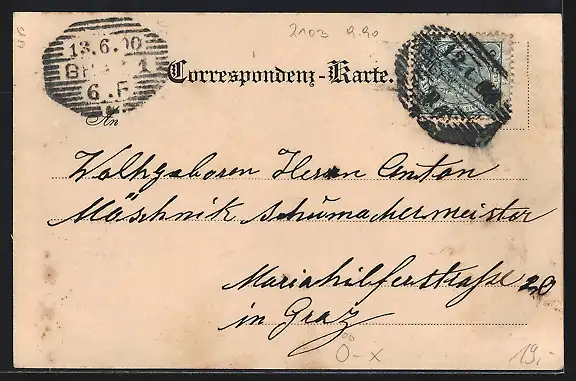 2103 9.90
13.6.00
6.F
Correspondenz-Karte.
An
Wohlgeboren Herrn Anton
Möschnik Schumachermeister
Mariahilferstraße 20
in Graz
Ö-x
19,-